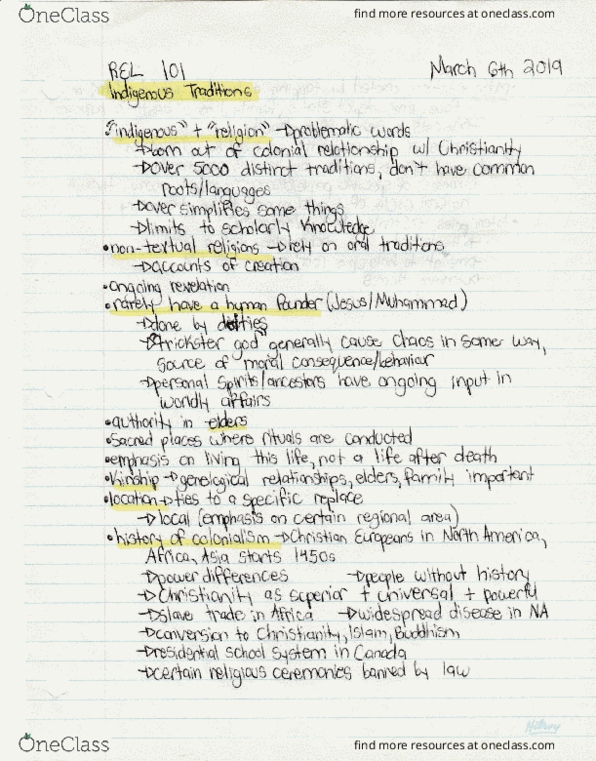 OneClass
find more resources at oneclass.com
REL 101
March 6th 2019
Indigenous Traditions
"indigenous" + "religion" → problematic words
→ born out of colonial relationship w/ Christianity
→ over 5000 distinct traditions, don't have common
roots/languages
→ over simplifies some things
→ limits to scholarly knowledge
• non-textual religions → rely on oral traditions
→ accounts of creation
• ongoing revelation
• rarely have a human founder (Jesus/Muhammad)
→ done by deities
→ trickster god generally cause chaos in some way,
source of moral consequence/behavior
→ personal spirits/ancestors have ongoing input in
worldly affairs
• authority in elders
• Sacred places where rituals are conducted
• emphasis on living this life, not a life after death
• Kinship → genelogical relationships, elders, family important
• location → ties to a specific replace
→ local (emphasis on certain regional area)
• history of colonialism → Christian Europeans in North America,
Africa, Asia starts 1450s
→ power differences → people without history
→ Christianity as superior + universal + powerful
→ slave trade in Africa → widespread disease in NA
→ conversion to Christianity, Islam, Buddhism
→ presidential school system in Canada
→ certain religious ceremonies banned by law
Hilroy
OneClass
find more resources at oneclass.com